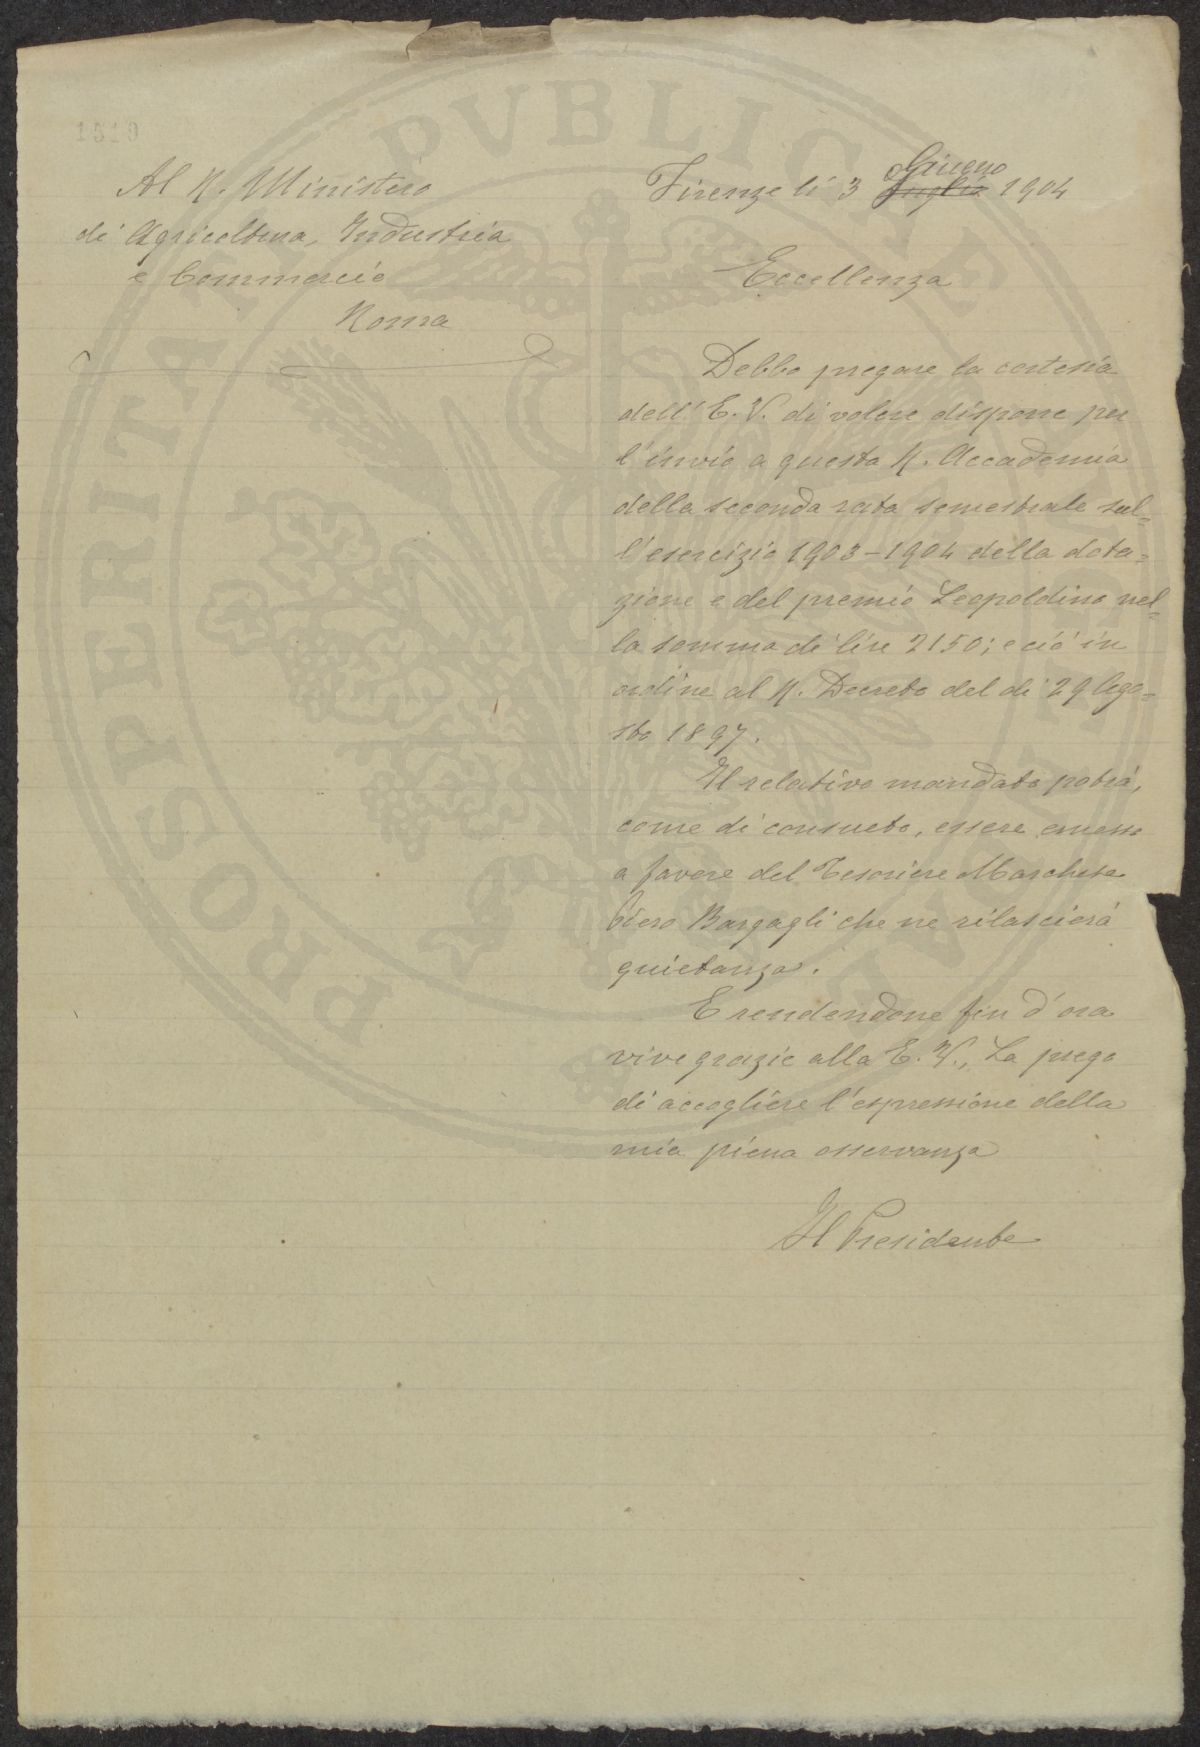 1510
Al R. Ministero
di Agricoltura, Industria
e Commercio
Roma
Firenze li 3 Giugno Luglio 1904
Eccellenza
Debbo pregare la cortesia
dell'E. V. di volere disporre per
l'invio a questa R. Accademia
della seconda rata semestrale sul=
l'esercizio 1903-1904 della dota=
zione e del premio Leopoldino nel=
la somma di lire 2150; e ciò in
ordine al R. Decreto del dì 29 Ago=
sto 1897.
Il relativo mandato potrà,
come di consueto, essere emesso
a favore del Tesoriere Marchese
Piero Bargagli che ne rilascierà
quietanza.
E rendendone fin d'ora
vive grazie alla E. V., La prego
di accogliere l'espressione della
mia piena osservanza
Il Presidente
PROSPERITATI PVBLICAE AVGENDAE